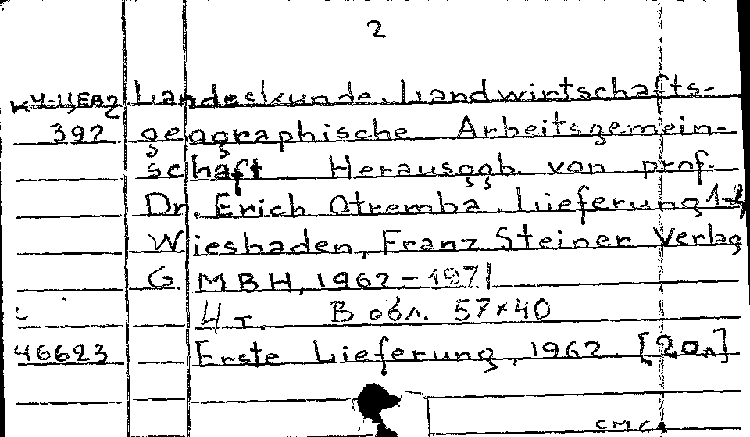 2
Landeskunde. Landwirtschafts-
392 geographische Arbeitsgemein-
schaft Herausggb. von prof.
Dr. Erich Otremba. Lieferung
Wiesbaden, Franz Steiner Verlag
G. MBH, 1962-1971
4 т. В обл. 57×40
46623 Erste Lieferung, 1962. [20л]
см.